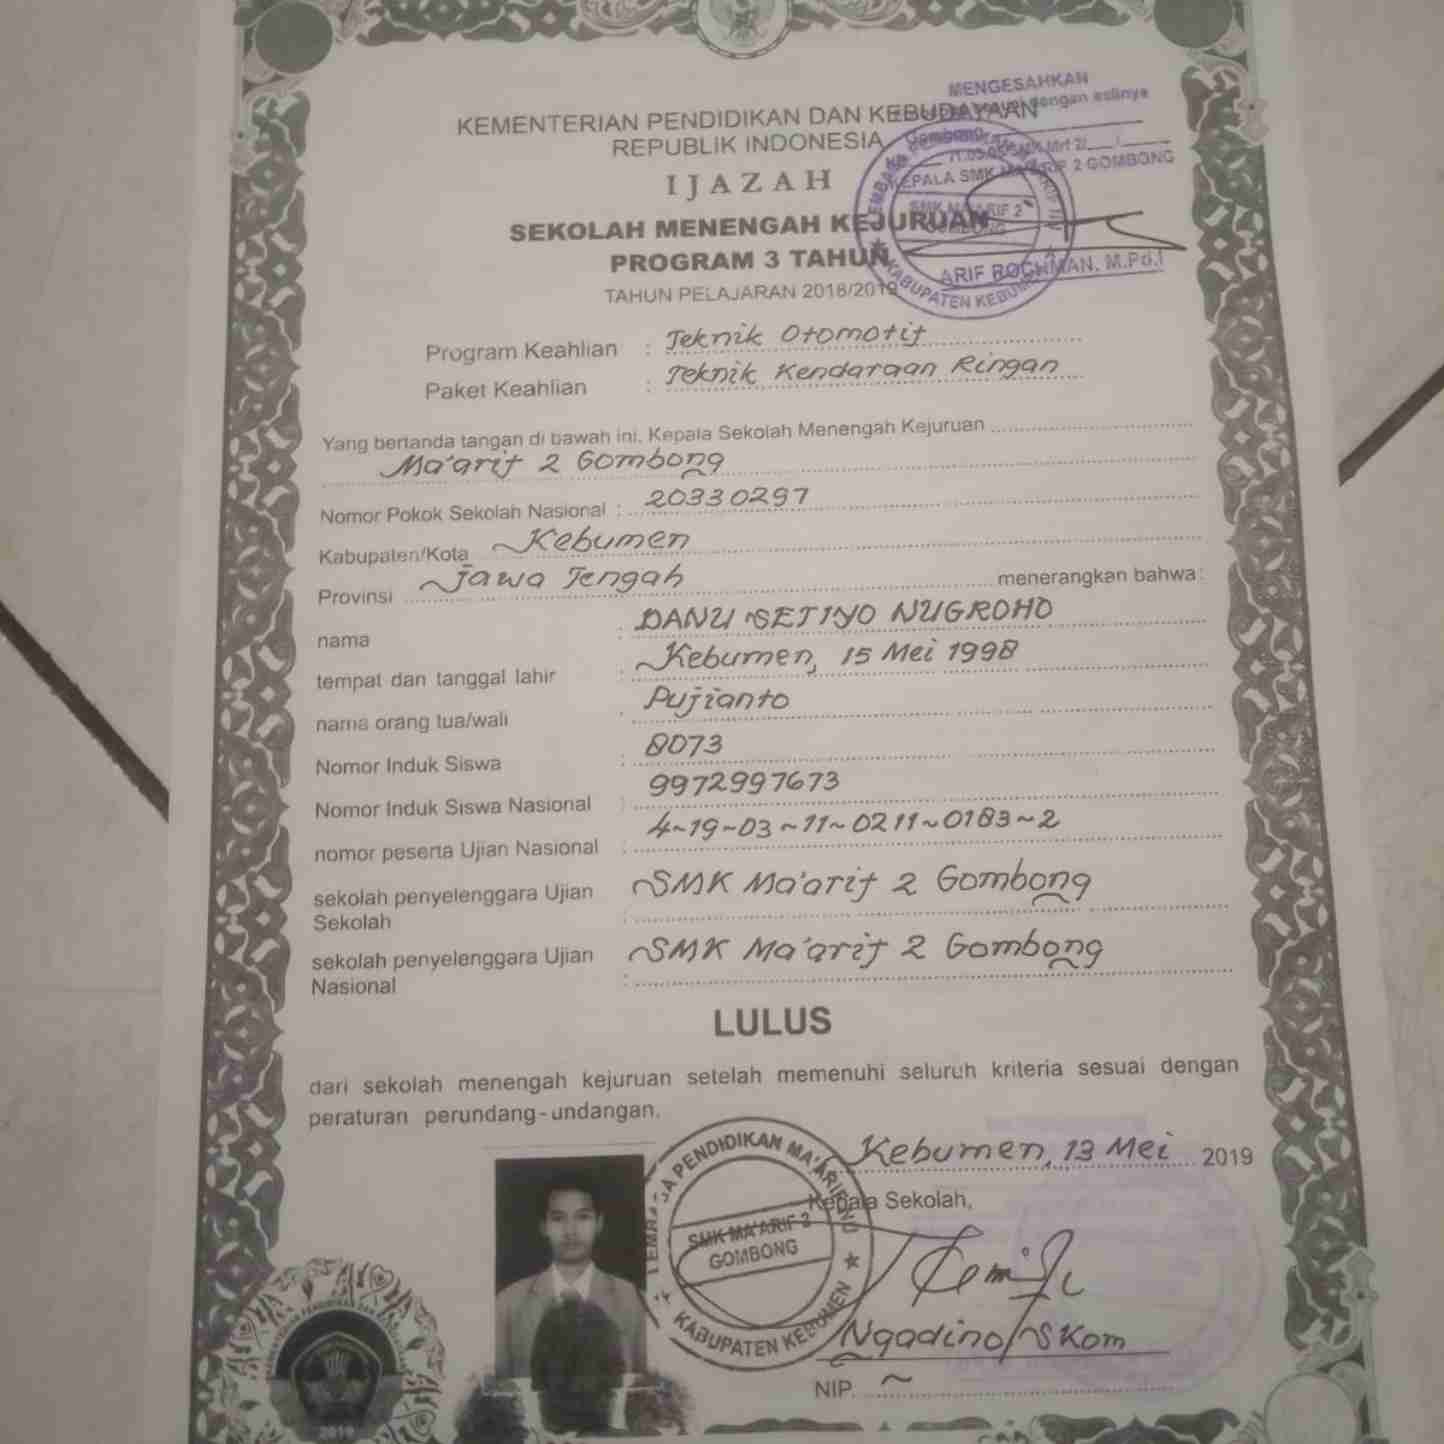 MENGESAHKAN
dengan aslinya
Gombong
KEPALA SMK MA'ARIF 2 GOMBONG
SMK MA'ARIF 2
GOMBONG
KABUPATEN KEBUMEN
ARIF ROCHMAN, M.Pd.I
KEMENTERIAN PENDIDIKAN DAN KEBUDAYAAN
REPUBLIK INDONESIA
IJAZAH
SEKOLAH MENENGAH KEJURUAN
PROGRAM 3 TAHUN
TAHUN PELAJARAN 2018/2019
Program Keahlian : Teknik Otomotif
Paket Keahlian : Teknik Kendaraan Ringan
Yang bertanda tangan di bawah ini, Kepala Sekolah Menengah Kejuruan
Ma'arif 2 Gombong
Nomor Pokok Sekolah Nasional : 20330297
Kabupaten/Kota Kebumen
Provinsi Jawa Tengah menerangkan bahwa:
nama : DANU SETIYO NUGROHO
tempat dan tanggal lahir : Kebumen, 15 Mei 1998
nama orang tua/wali : Pujianto
Nomor Induk Siswa : 8073
Nomor Induk Siswa Nasional : 9972997673
nomor peserta Ujian Nasional : 4-19-03-11-0211-0183-2
sekolah penyelenggara Ujian Sekolah : SMK Ma'arif 2 Gombong
sekolah penyelenggara Ujian Nasional : SMK Ma'arif 2 Gombong
LULUS
dari sekolah menengah kejuruan setelah memenuhi seluruh kriteria sesuai dengan
peraturan perundang-undangan.
Kebumen, 13 Mei 2019
Kepala Sekolah,
LEMBAGA PENDIDIKAN MA'ARIF NU
SMK MA'ARIF 2
GOMBONG
KABUPATEN KEBUMEN
Ngadino, SKom
NIP. ~
2019